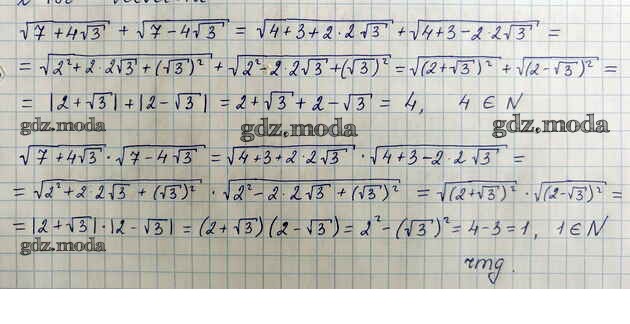 √(7+4√3) + √(7-4√3) = √(4+3+2·2√3) + √(4+3-2·2√3) =
= √(2²+2·2√3+(√3)²) + √(2²-2·2√3+(√3)²) = √((2+√3)²) + √((2-√3)²) =
= |2+√3| + |2-√3| = 2+√3+2-√3 = 4, 4 ∈ N
gdz.moda gdz.moda gdz.moda
√(7+4√3) · √(7-4√3) = √(4+3+2·2√3) · √(4+3-2·2√3) =
= √(2²+2·2√3+(√3)²) · √(2²-2·2√3+(√3)²) = √((2+√3)²) · √((2-√3)²) =
= |2+√3| · |2-√3| = (2+√3)(2-√3) = 2²-(√3)² = 4-3 = 1, 1 ∈ N
gdz.moda
rmg.